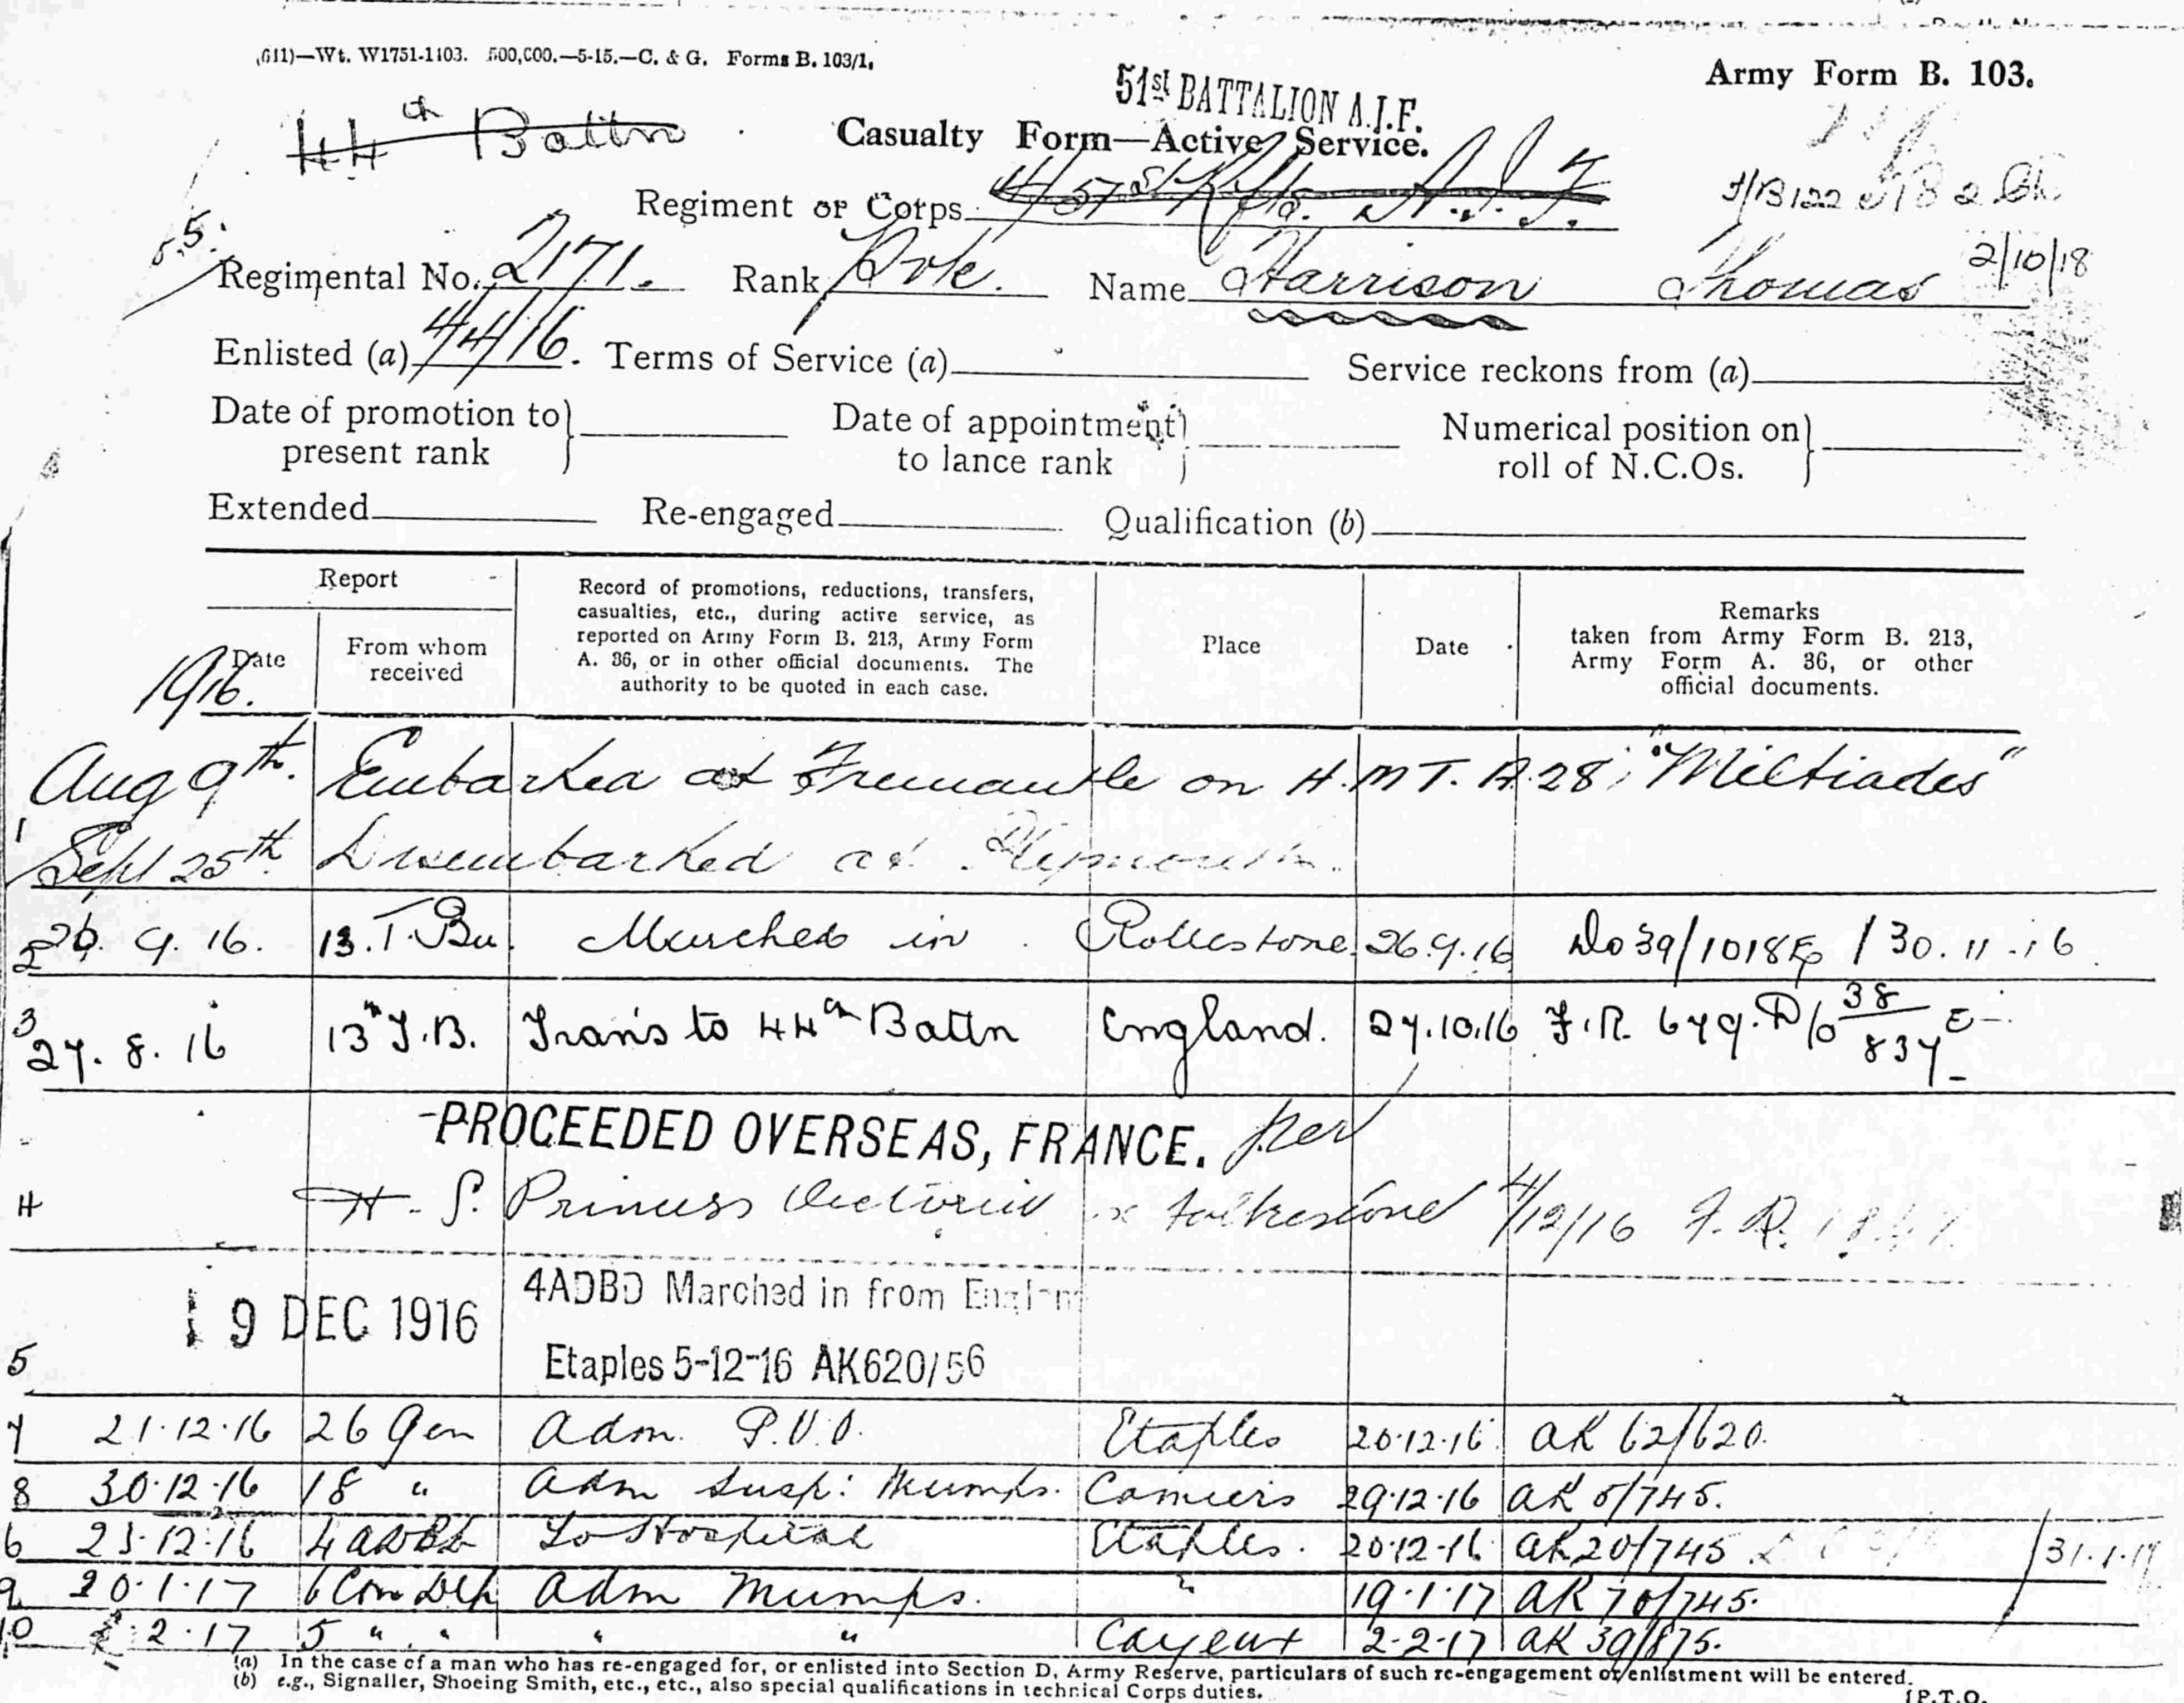 (611)—Wt. W1751-1103. 500,000.—5-15.—C. & G. Forms B. 103/1.
Army Form B. 103.
51st BATTALION A.I.F.
44th Battn
Casualty Form—Active Service.
Regiment or Corps 4/51st Rfts. A.I.F.
2/10/18
Regimental No. 2171. Rank Pvte. Name Harrison Thomas
Enlisted (a) 4/4/16. Terms of Service (a) Service reckons from (a)
Date of promotion to present rank } Date of appointment to lance rank } Numerical position on roll of N.C.Os. }
Extended Re-engaged Qualification (b)
Report
Date
From whom received
Record of promotions, reductions, transfers, casualties, etc., during active service, as reported on Army Form B. 213, Army Form A. 36, or in other official documents. The authority to be quoted in each case.
Place
Date
Remarks taken from Army Form B. 213, Army Form A. 36, or other official documents.
1916.
Aug 9th. Embarked at Fremantle on H.M.T. A.28 "Miltiades"
1 Sept 25th. Disembarked at Plymouth.
2 26. 9. 16. 13.T.Bn. Marched in Rollestone 26.9.16 Do 39/1018 / 30.11.16
3 27. 8. 16 13th T.B. Trans to 44th Battn England. 27.10.16 F.R. 679. D/o 38/837
PROCEEDED OVERSEAS, FRANCE. per
4 H.S. Princess Victoria ex Folkestone 4/12/16 F.R.
19 DEC 1916 4ADBD Marched in from England
5 Etaples 5-12-16 AK620/56
7 21.12.16 26 Gen Adm. P.U.O. Etaples 20.12.16 AK 62/620.
8 30.12.16 18 " Adm Susp: Mumps. Camiers 29.12.16 AK 5/745.
6 23.12.16 4 ADBD To Hospital Etaples. 20.12.16 AK20/745 31.1.17
9 20.1.17 6 Con Dep Adm Mumps. " 19.1.17 AK 70/745.
10 2.2.17 5 " " " " Cayeux 2-2-17 AK 39/875.
(a) In the case of a man who has re-engaged for, or enlisted into Section D, Army Reserve, particulars of such re-engagement or enlistment will be entered.
(b) e.g., Signaller, Shoeing Smith, etc., etc., also special qualifications in technical Corps duties.
[P.T.O.